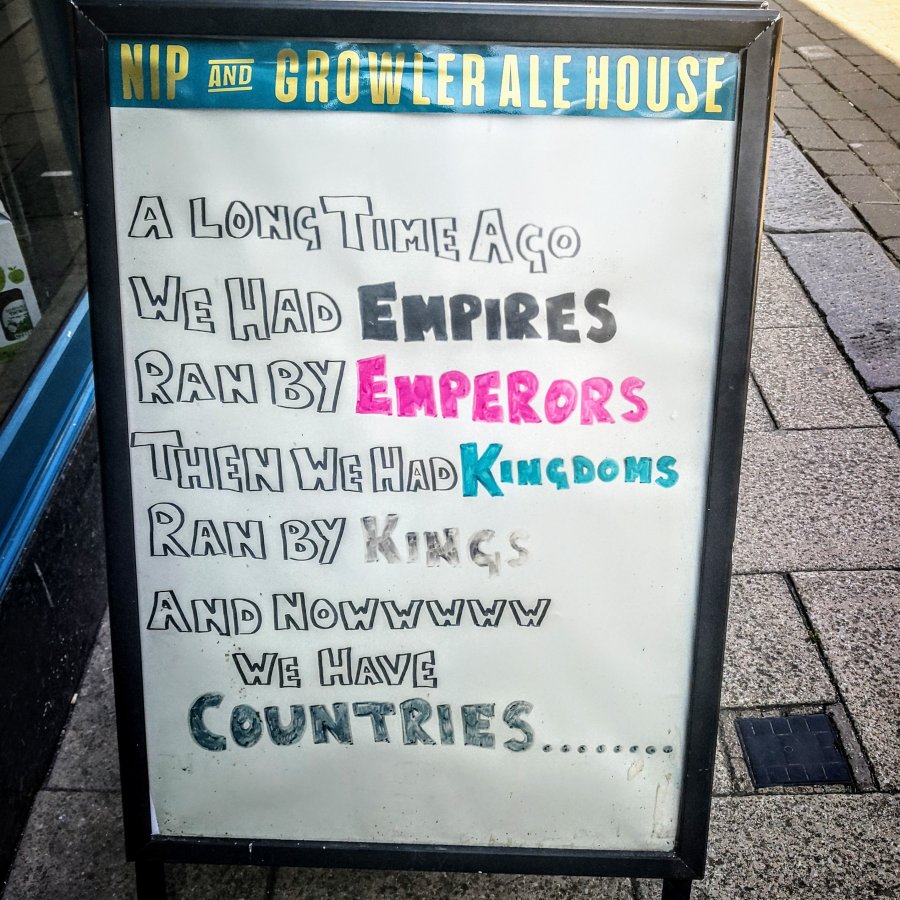 NIP AND GROWLER ALE HOUSE
A LONG TIME AGO
WE HAD EMPIRES
RAN BY EMPERORS
THEN WE HAD KINGDOMS
RAN BY KINGS
AND NOWWWWW
WE HAVE
COUNTRIES........